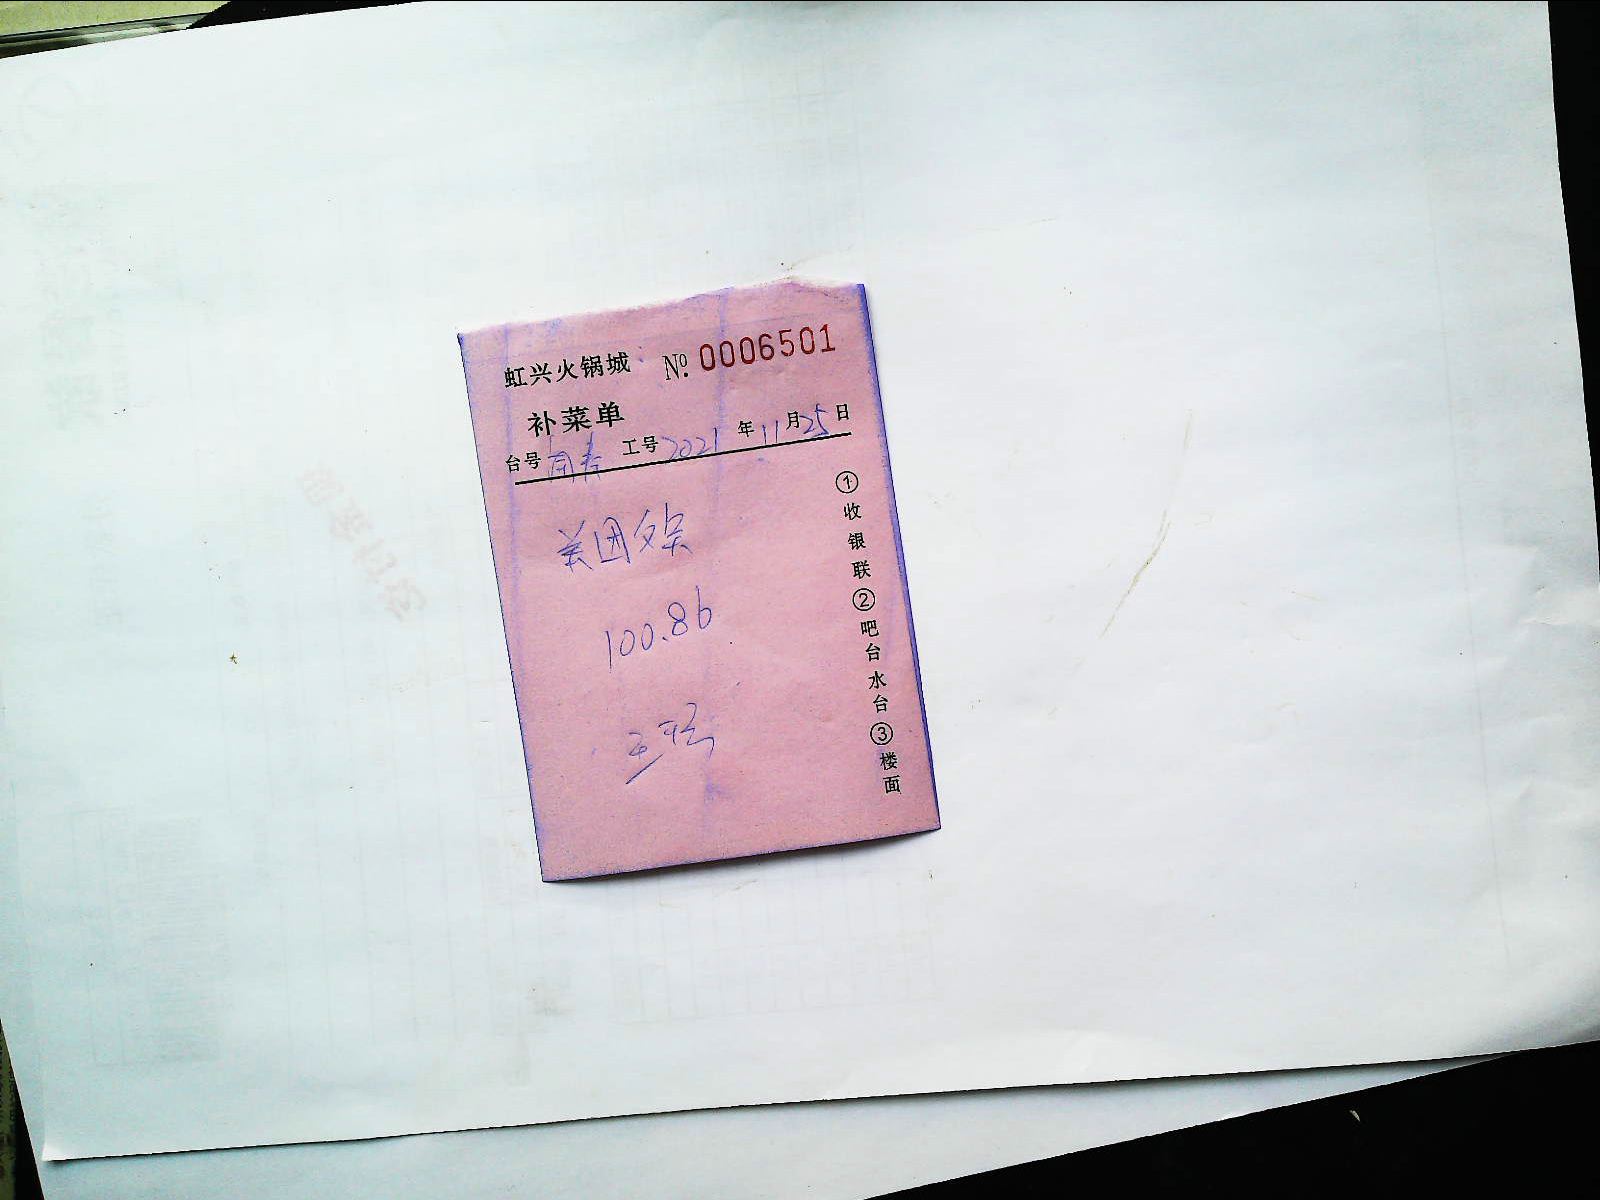 虹兴火锅城 No. 0006501
补菜单
台号 工号 2021 年 11 月 25 日
美团
100.86
①收银联②吧台水台③楼面